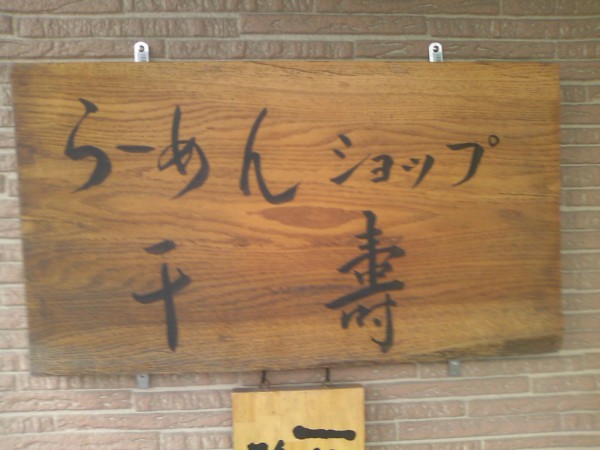 らーめんショップ
千寿
一